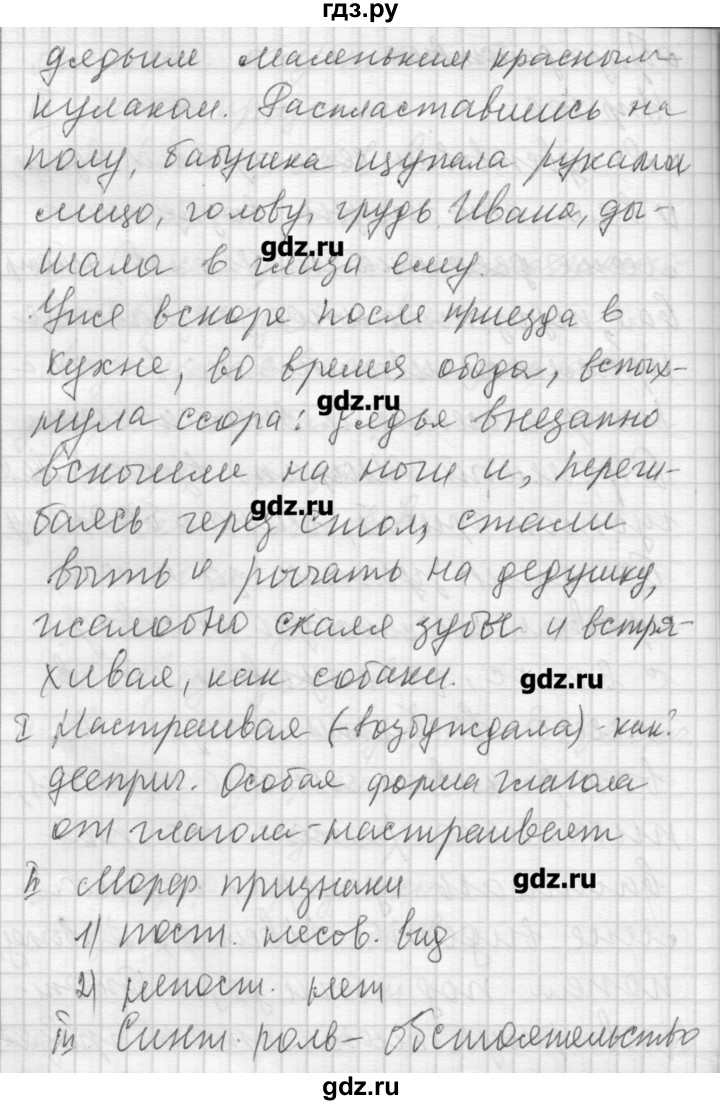 гдз.ру
дядьям маленьким красным
кулаком. Распластавшись на
полу, бабушка щупала руками
лицо, голову, грудь Ивана, ды-
gdz.ru
шала в глаза ему
Уже вскоре после приезда в
кухне, во время обеда, вспых-
gdz.ru
нула ссора: дядья внезапно
вскочили на ноги и, переги-
gdz.ru
баясь через стол, стали
выть и рычать на дедушку,
жалобно скаля зубы и встря-
хивая, как собаки.
gdz.ru
I Настраивая (-возбуждала) - как?
дееприч. Особая форма глагола
от глагола - настраивает
II Морф. признаки
gdz.ru
1) пост. несов. вид
2) непост. нет
III Синт. роль - обстоятельство
gdz.ru